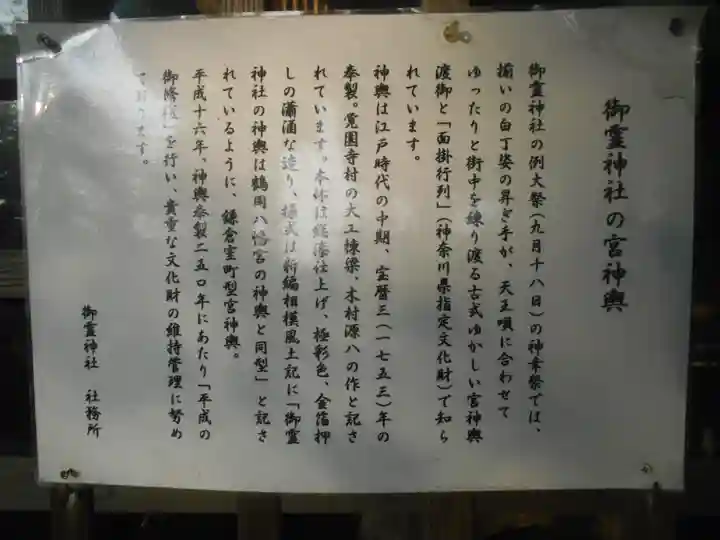 御霊神社の宮神輿
御霊神社の例大祭(九月十八日)の神幸祭では、
揃いの白丁姿の舁ぎ手が、天王唄に合わせて
ゆったりと街中を練り渡る古式ゆかしい宮神輿
渡御と「面掛行列」(神奈川県指定文化財)で知ら
れています。
神輿は江戸時代の中期、宝暦三(一七五三)年の
奉製。覚園寺村の大工棟梁、木村源八の作と記さ
れています。本体は総漆仕上げ、極彩色、金箔押
しの瀟洒な造り、様式は新編相模風土記に「御霊
神社の神輿は鶴岡八幡宮の神輿と同型」と記さ
れているように、鎌倉室町型宮神輿。
平成十六年、神輿奉製二五〇年にあたり「平成の
御修復」を行い、貴重な文化財の維持管理に努め
ております。
御霊神社 社務所